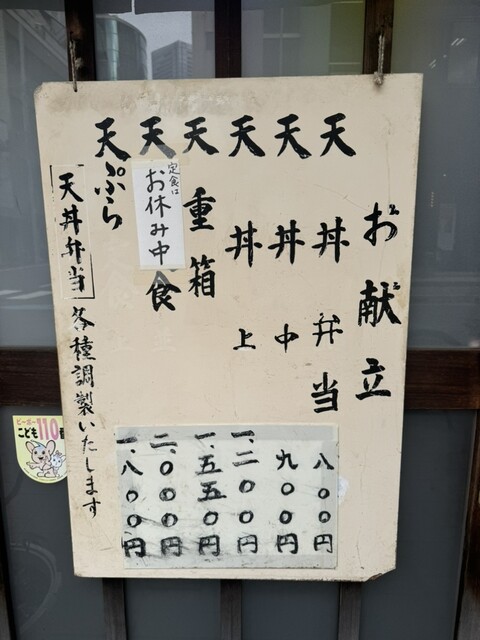 お献立
天丼弁当 八〇〇円
天丼中 九〇〇円
天丼上 一、二〇〇円
天重箱 一、五五〇円
天 食 二、〇〇〇円
定食は
お休み中
天ぷら 一、八〇〇円
天丼弁当各種調製いたします
ピーポ
こども110番